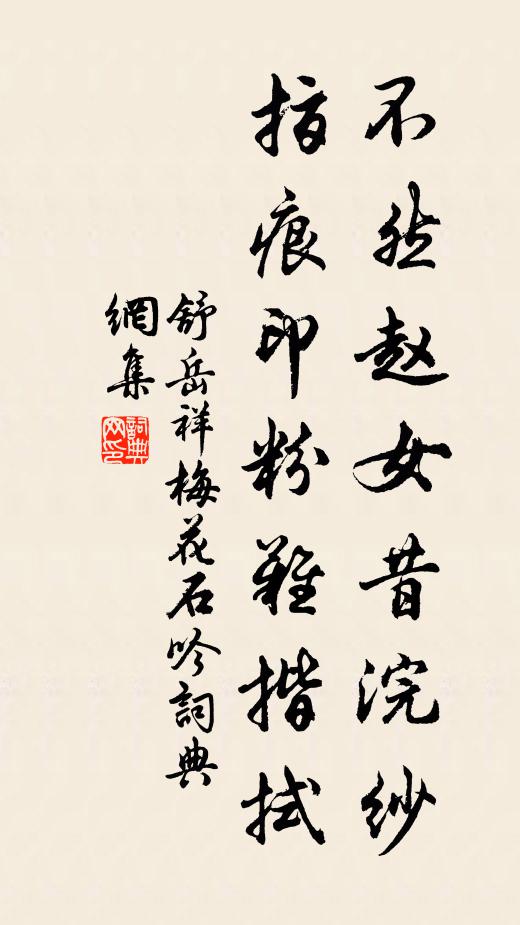 不然赵女昔浣纱
指痕印粉難揩拭
舒岳祥梅花石吟詞典
網集
詞典
网印